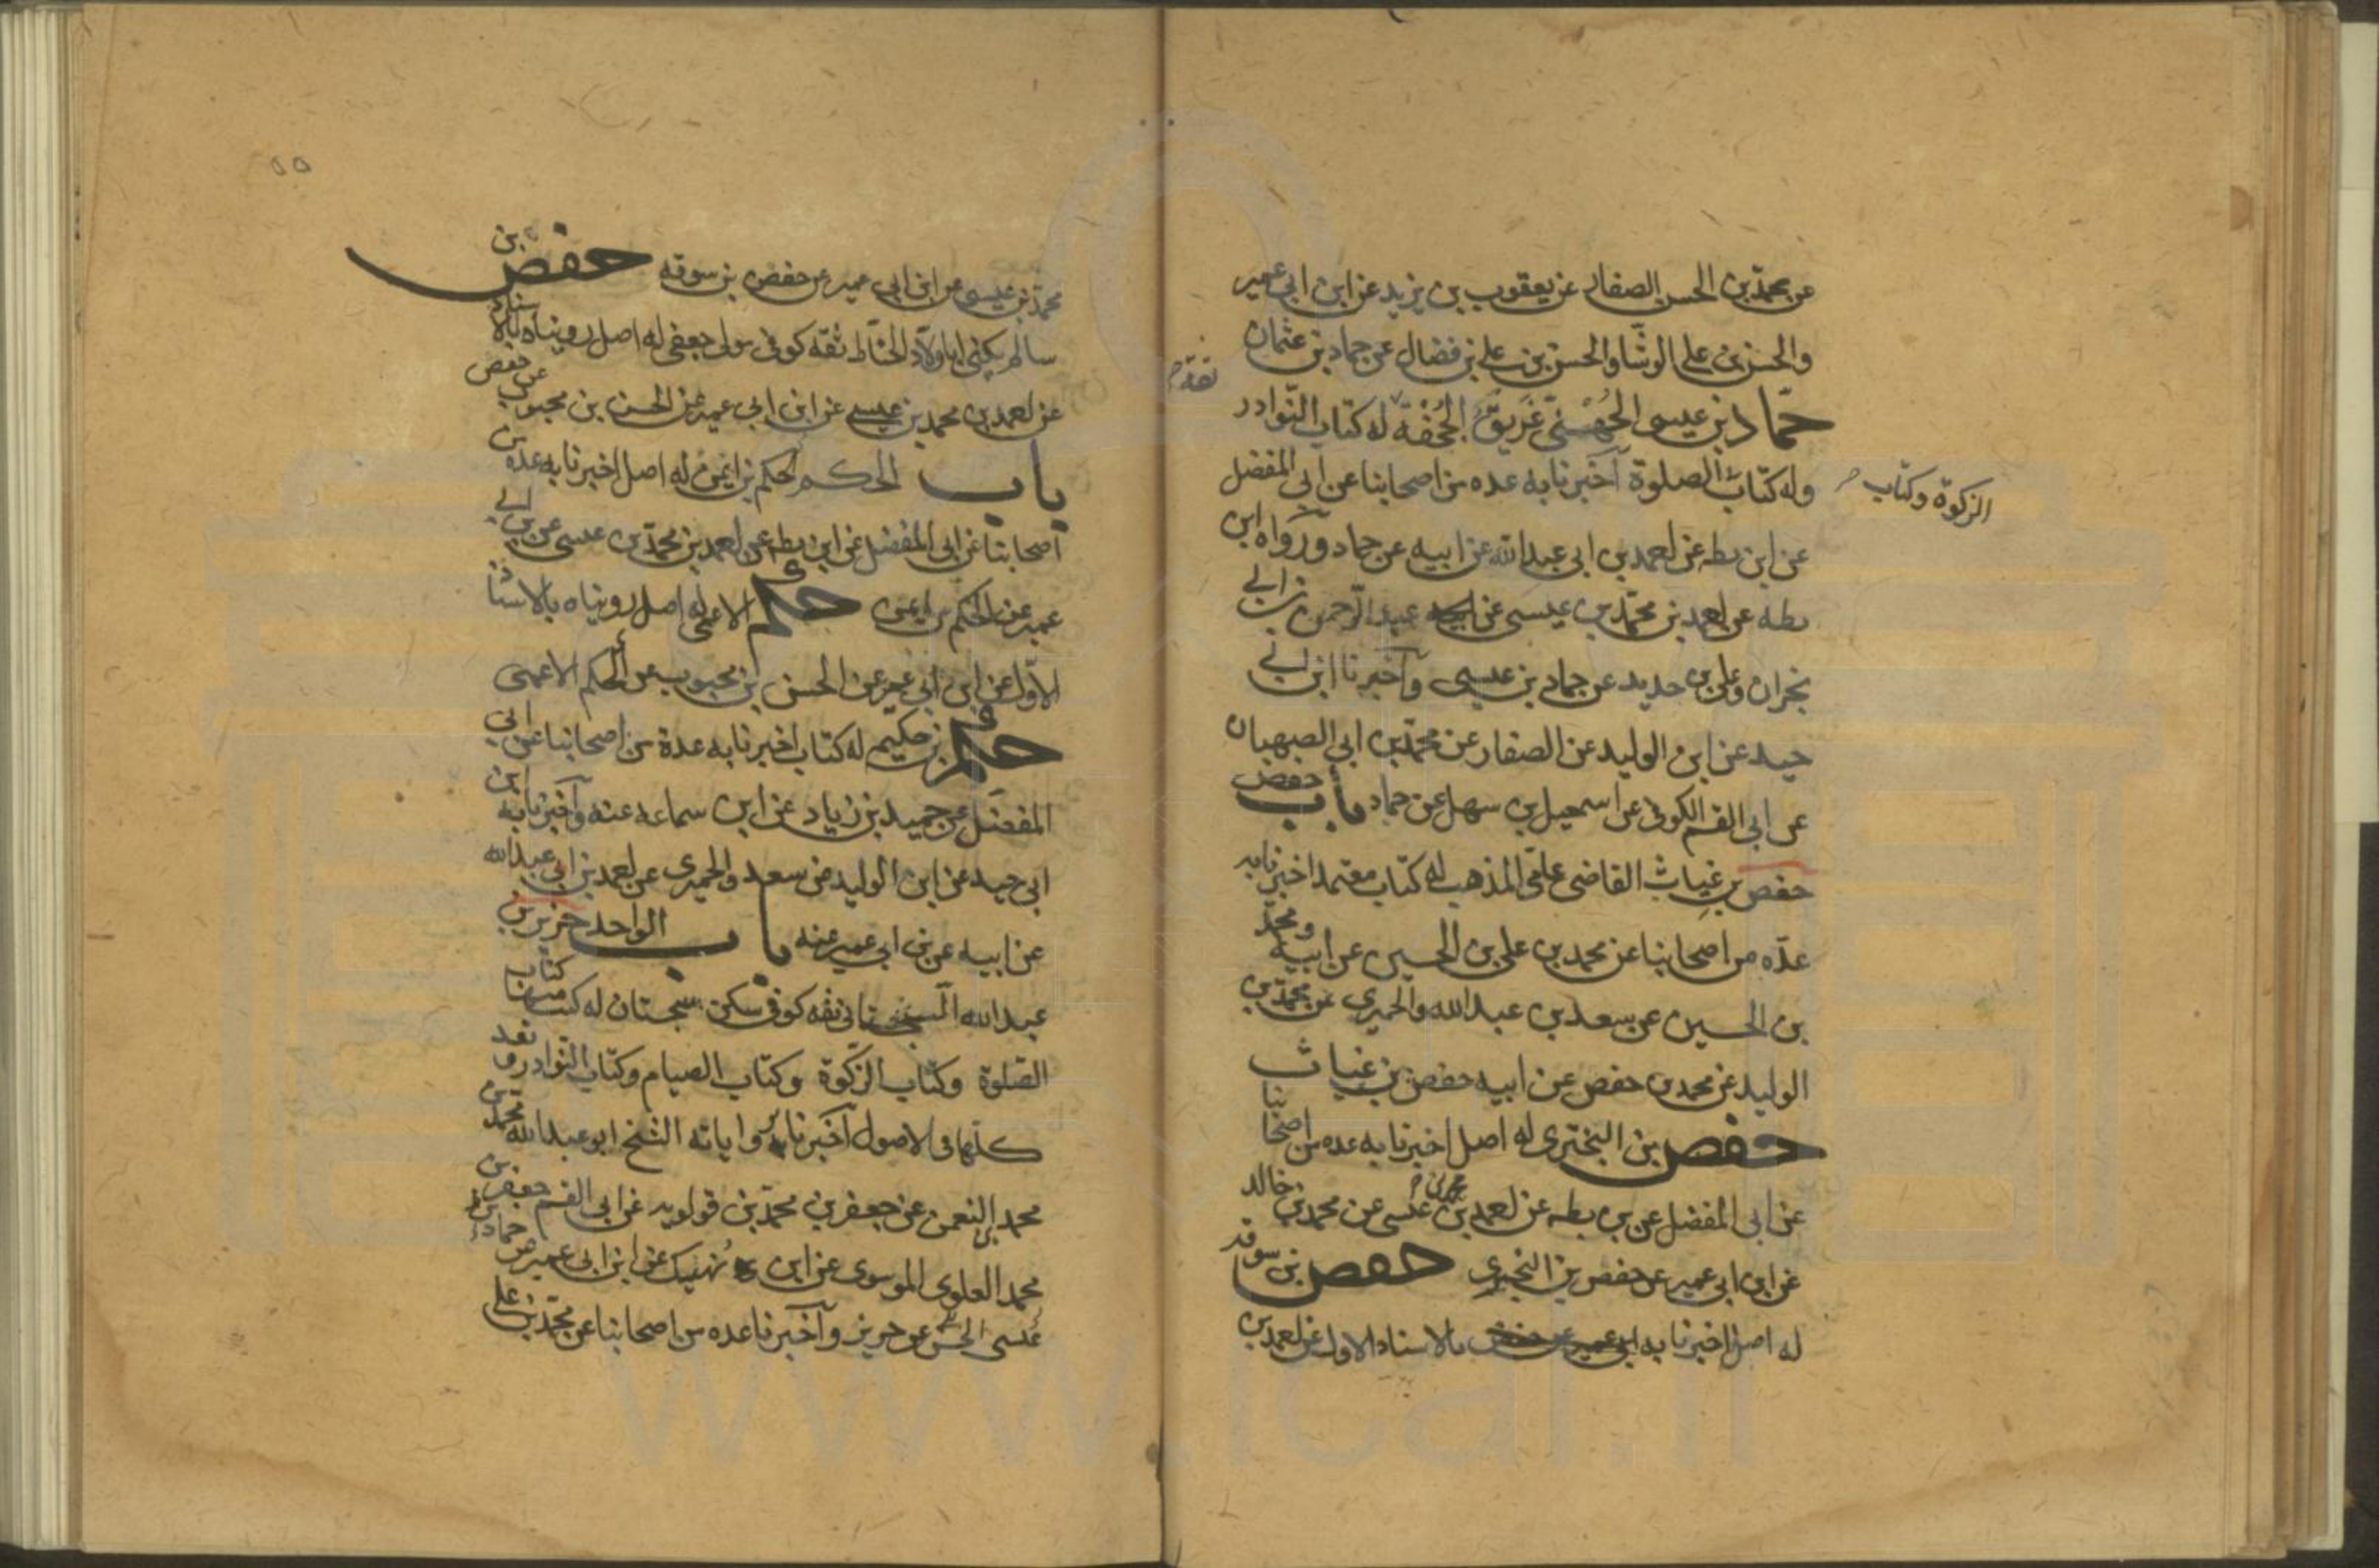 عن محمد بن الحسن الصفار عن يعقوب بن يزيد عن ابن ابي عمير
والحسن بن علي الوشا والحسن بن علي بن فضال عن حماد بن عثمان
حماد بن عيسى الجهني غريق الجحفة له كتاب النوادر
ثقة
وله كتاب الصلوة اخبرنا به عده من اصحابنا عن ابي المفضل
الزكوة وكتاب
عن ابن بطه عن احمد بن ابي عبدالله عن ابيه عن حماد ورواه ابن
بطه عن احمد بن محمد بن عيسى عن عبد الرحمن بن ابي
نجران وعلي بن حديد عن حماد بن عيسى واخبرنا ابن ابي
جيد عن ابن الوليد عن الصفار عن محمد بن ابي الصهبان
عن ابي القسم الكوفي عن اسمعيل بن سهل عن حماد باب حفص
حفص بن غياث القاضي عامي المذهب له كتاب معتمد اخبرنا به
عده من اصحابنا عن محمد بن علي بن الحسين عن ابيه ومحمد
بن الحسين عن سعد بن عبدالله والحميري عن محمد بن
الوليد عن محمد بن حفص عن ابيه حفص بن غياث
حفص بن البختري له اصل اخبرنا به عده من اصحابنا
عن ابي المفضل عن بن بطه عن احمد بن محمد بن عيسى عن محمد بن خالد
عن ابن ابي عمير عن حفص بن البختري حفص بن سوقه
له اصل اخبرنا به بالاسناد الاول عن احمد بن
٥٥
محمد بن عيسى عن ابن ابي عمير عن حفص بن سوقه حفص بن
سالم يكنى ابا ولاد الحناط ثقه كوفي مولى جعفي له اصل رويناه بالاسناد
عن احمد بن محمد بن عيسى عن ابن ابي عمير عن الحسن بن محبوب عن حفص
باب الحكم الحكم بن ايمن له اصل اخبرنا به عده من
اصحابنا عن ابي المفضل عن ابن بطه عن احمد بن محمد بن عيسى عن بن ابي
عمير عن الحكم بن ايمن حكم الاعمى له اصل رويناه بالاسناد
الاول عن ابن ابي عمير عن الحسن بن محبوب عن الحكم الاعمى
حكم بن حكيم له كتاب اخبرنا به عدة من اصحابنا عن ابي
المفضل عن حميد بن زياد عن ابن سماعه عنه واخبرنا به ابن
ابي جيد عن ابن الوليد عن سعد والحميري عن احمد بن ابي عبدالله
عن ابيه عن بن ابي عمير عنه باب الواحد حريز بن
عبدالله السجستاني ثقه كوفي سكن سجستان له كتب منها كتاب
الصلوة وكتاب الزكوة وكتاب الصيام وكتاب النوادر وتعد
كلها في الاصول اخبرنا برواياته الشيخ ابو عبدالله محمد بن
محمد بن النعمن عن جعفر بن محمد بن قولويه عن ابي القسم جعفر بن
محمد العلوي الموسوي عن ابن نهيك عن ابن ابي عمير عن حماد بن
عيسى عن حريز واخبرنا عده من اصحابنا عن محمد بن علي
www.ical.ir